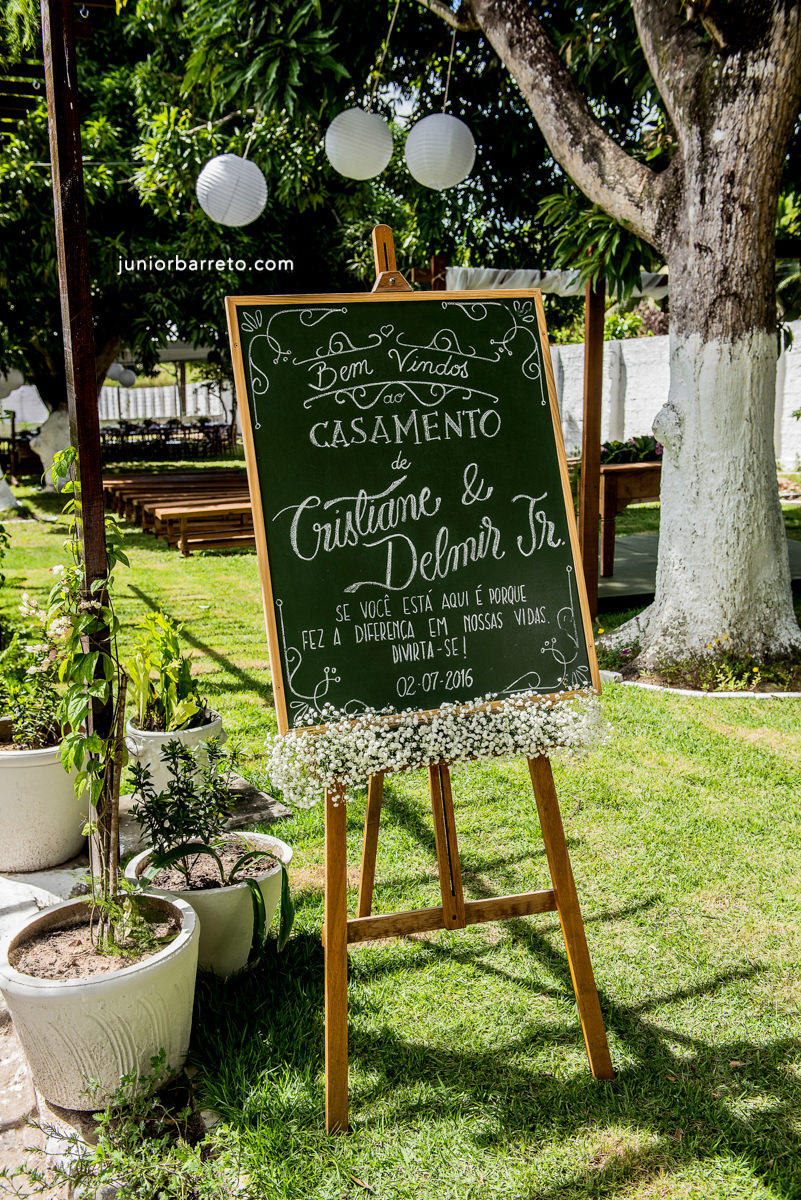 juniorbarreto.com
Bem Vindos
ao
CASAMENTO
de
Cristiane &
Delmir Jr.
SE VOCÊ ESTÁ AQUI É PORQUE
FEZ A DIFERENÇA EM NOSSAS VIDAS.
DIVIRTA-SE!
02-07-2016